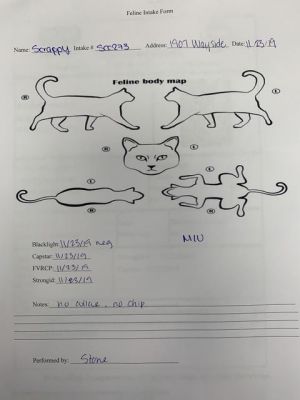 Feline Intake Form
Name: Scrappy Intake # Address: 1907 Wayside Date: 11/23/19
Feline body map
R L
R L
L L
R R
Blacklight: 11/23/19 neg MIU
Capstar: 11/23/19
FVRCP: 11/23/19
Strongid: 11/23/19
Notes: no collar, no chip
Performed by: Stone